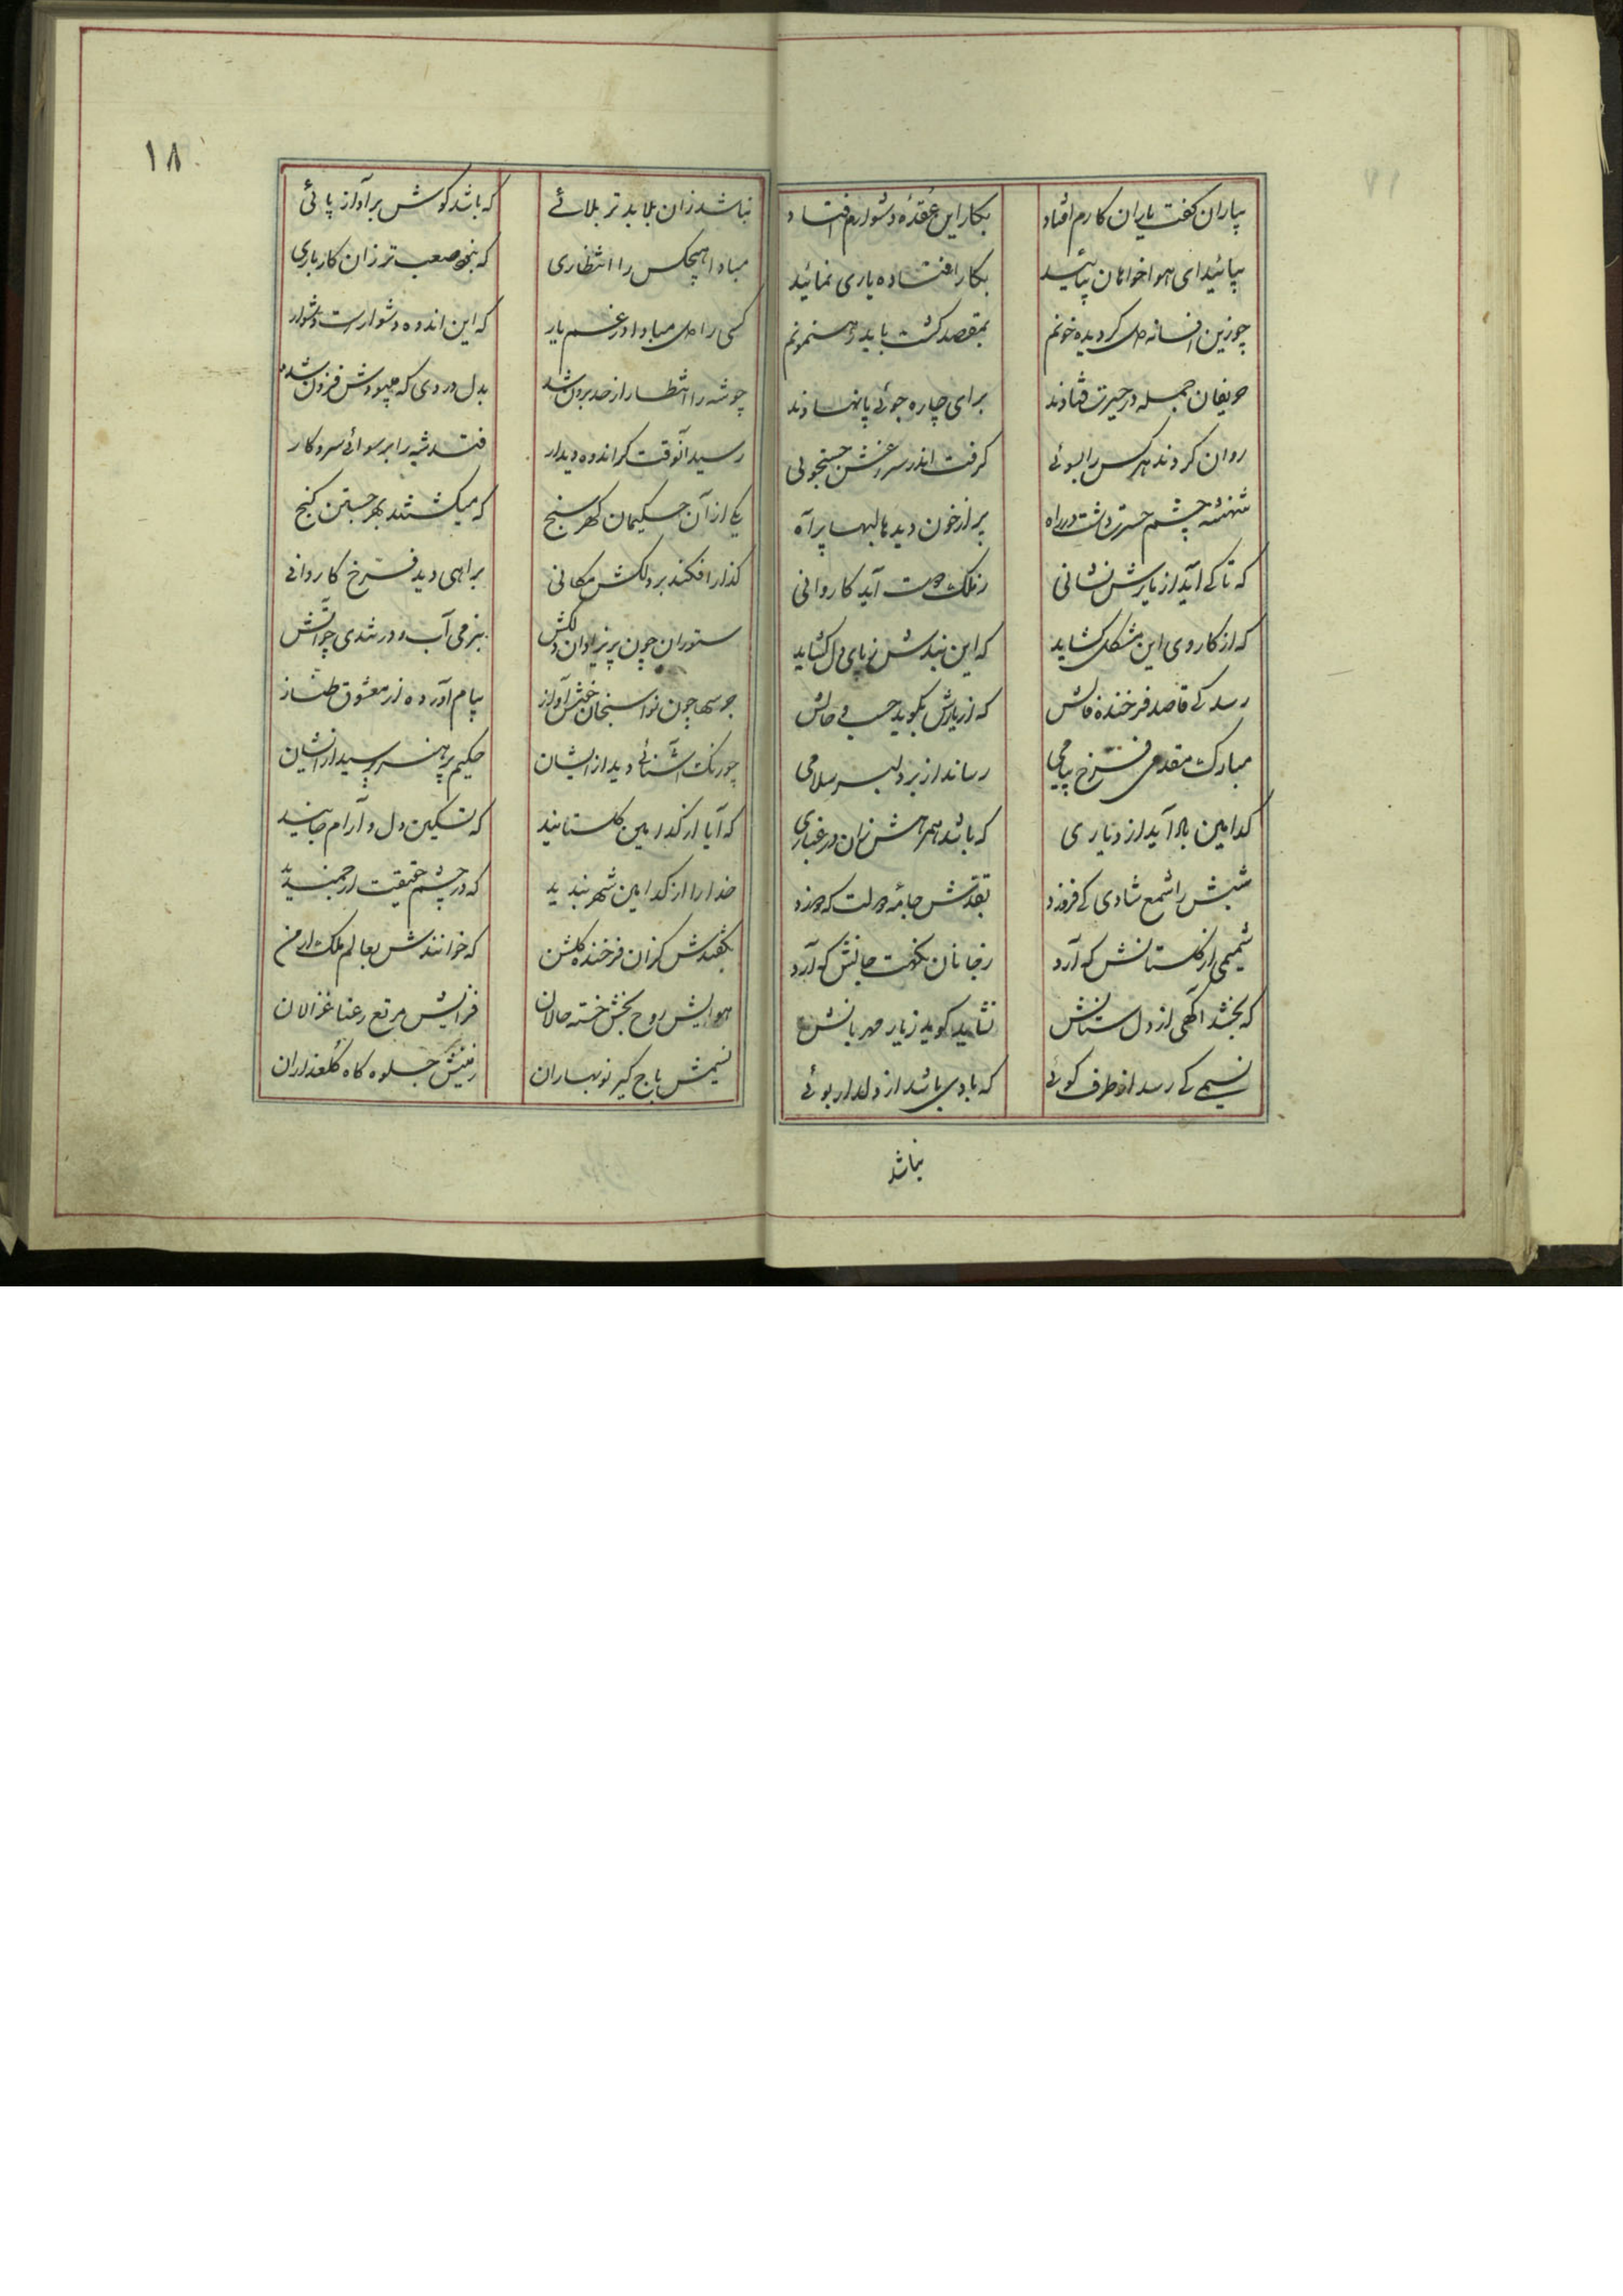 بیاران کفت یاران کارم افتاد
بکار این عقدهٔ دشوارم افتاد
بیائید ای هواخواهان بیائید
بکار افتاده یاری نمائید
چو زین افسانه دل کردیده خونم
بمقصد کشت باید رهنمونم
حریفان جمله در حیرت فتادند
برای چاره جوئی پا نهادند
روان کردند هر کس را بسوئی
کرفت اندر سرغش جستجوئی
شهنشه چشم حسرت داشت در راه
پر از خون دیدها لبها پر آه
که تا کے آید از یارش نشانی
ز ملک دوست آید کاروانی
که از کار وی این مشکل کشاید
که این بندش ز پای دل کشاید
رسد کے قاصد فرخنده فالش
که از یارش بکوید حسب حالش
مبارک مقدمی فرخ پیامی
رساند از بر دلبر سلامی
کدامین باد آید از دیاری
که باشد همرهش زان در غباری
شبش را شمع شادی کے فروزد
بقدش جامهٔ دولت که دوزد
شمیمی از کلستانش که آرد
ز جانان نکهت جانش که آرد
که بخشد آکهی از دل ستانش
نشاید کوید ز یار مهربانش
نسیمے کے رسد از طرف کوئے
که با وی باشد از دلدار بوئے
نباشد
۱۸
نباشد زان بلا بدتر بلائے
که باشد کوش بر آواز پائی
مبادا هیچکس را انتظاری
که نبود صعب تر زان کار باری
کسی را دل مبادا در غم یار
که این اندوه دشوارست دشوار
چو شه را انتظار از حد برون شد
بدل دردی که میبودش فزون شد
رسید آنوقت کز اندوه دیدار
فتد شه را برسوائے سر و کار
یکے از آن حکیمان کهر سنج
که میکشتند بهر جستن کنج
کذار افکند بر دلکش مکانی
براهی دید فرخ کاروانے
ستوران چون پریزادان دلکش
بنرمی آب و در تندی چو آتش
جرسها چون نواسنجان خوش آواز
پیام آورده از معشوق طناز
چو رنک آشنائے دید از ایشان
حکیم پر هنر پرسید از ایشان
که آیا از کدامین کلستانید
که تسکین دل و آرام جانید
خدا را از کدامین شهر بندید
که در چشم حقیقت ارجمندید
بکفتندش کزان فرخنده کلشن
که خوانندش بعالم ملک ارمن
هوایش روح بخش خسته حالان
فزایش مرتع رعنا غزالان
نسیمش باج کیر نوبهاران
زمینش جلوه کاه کلعذاران